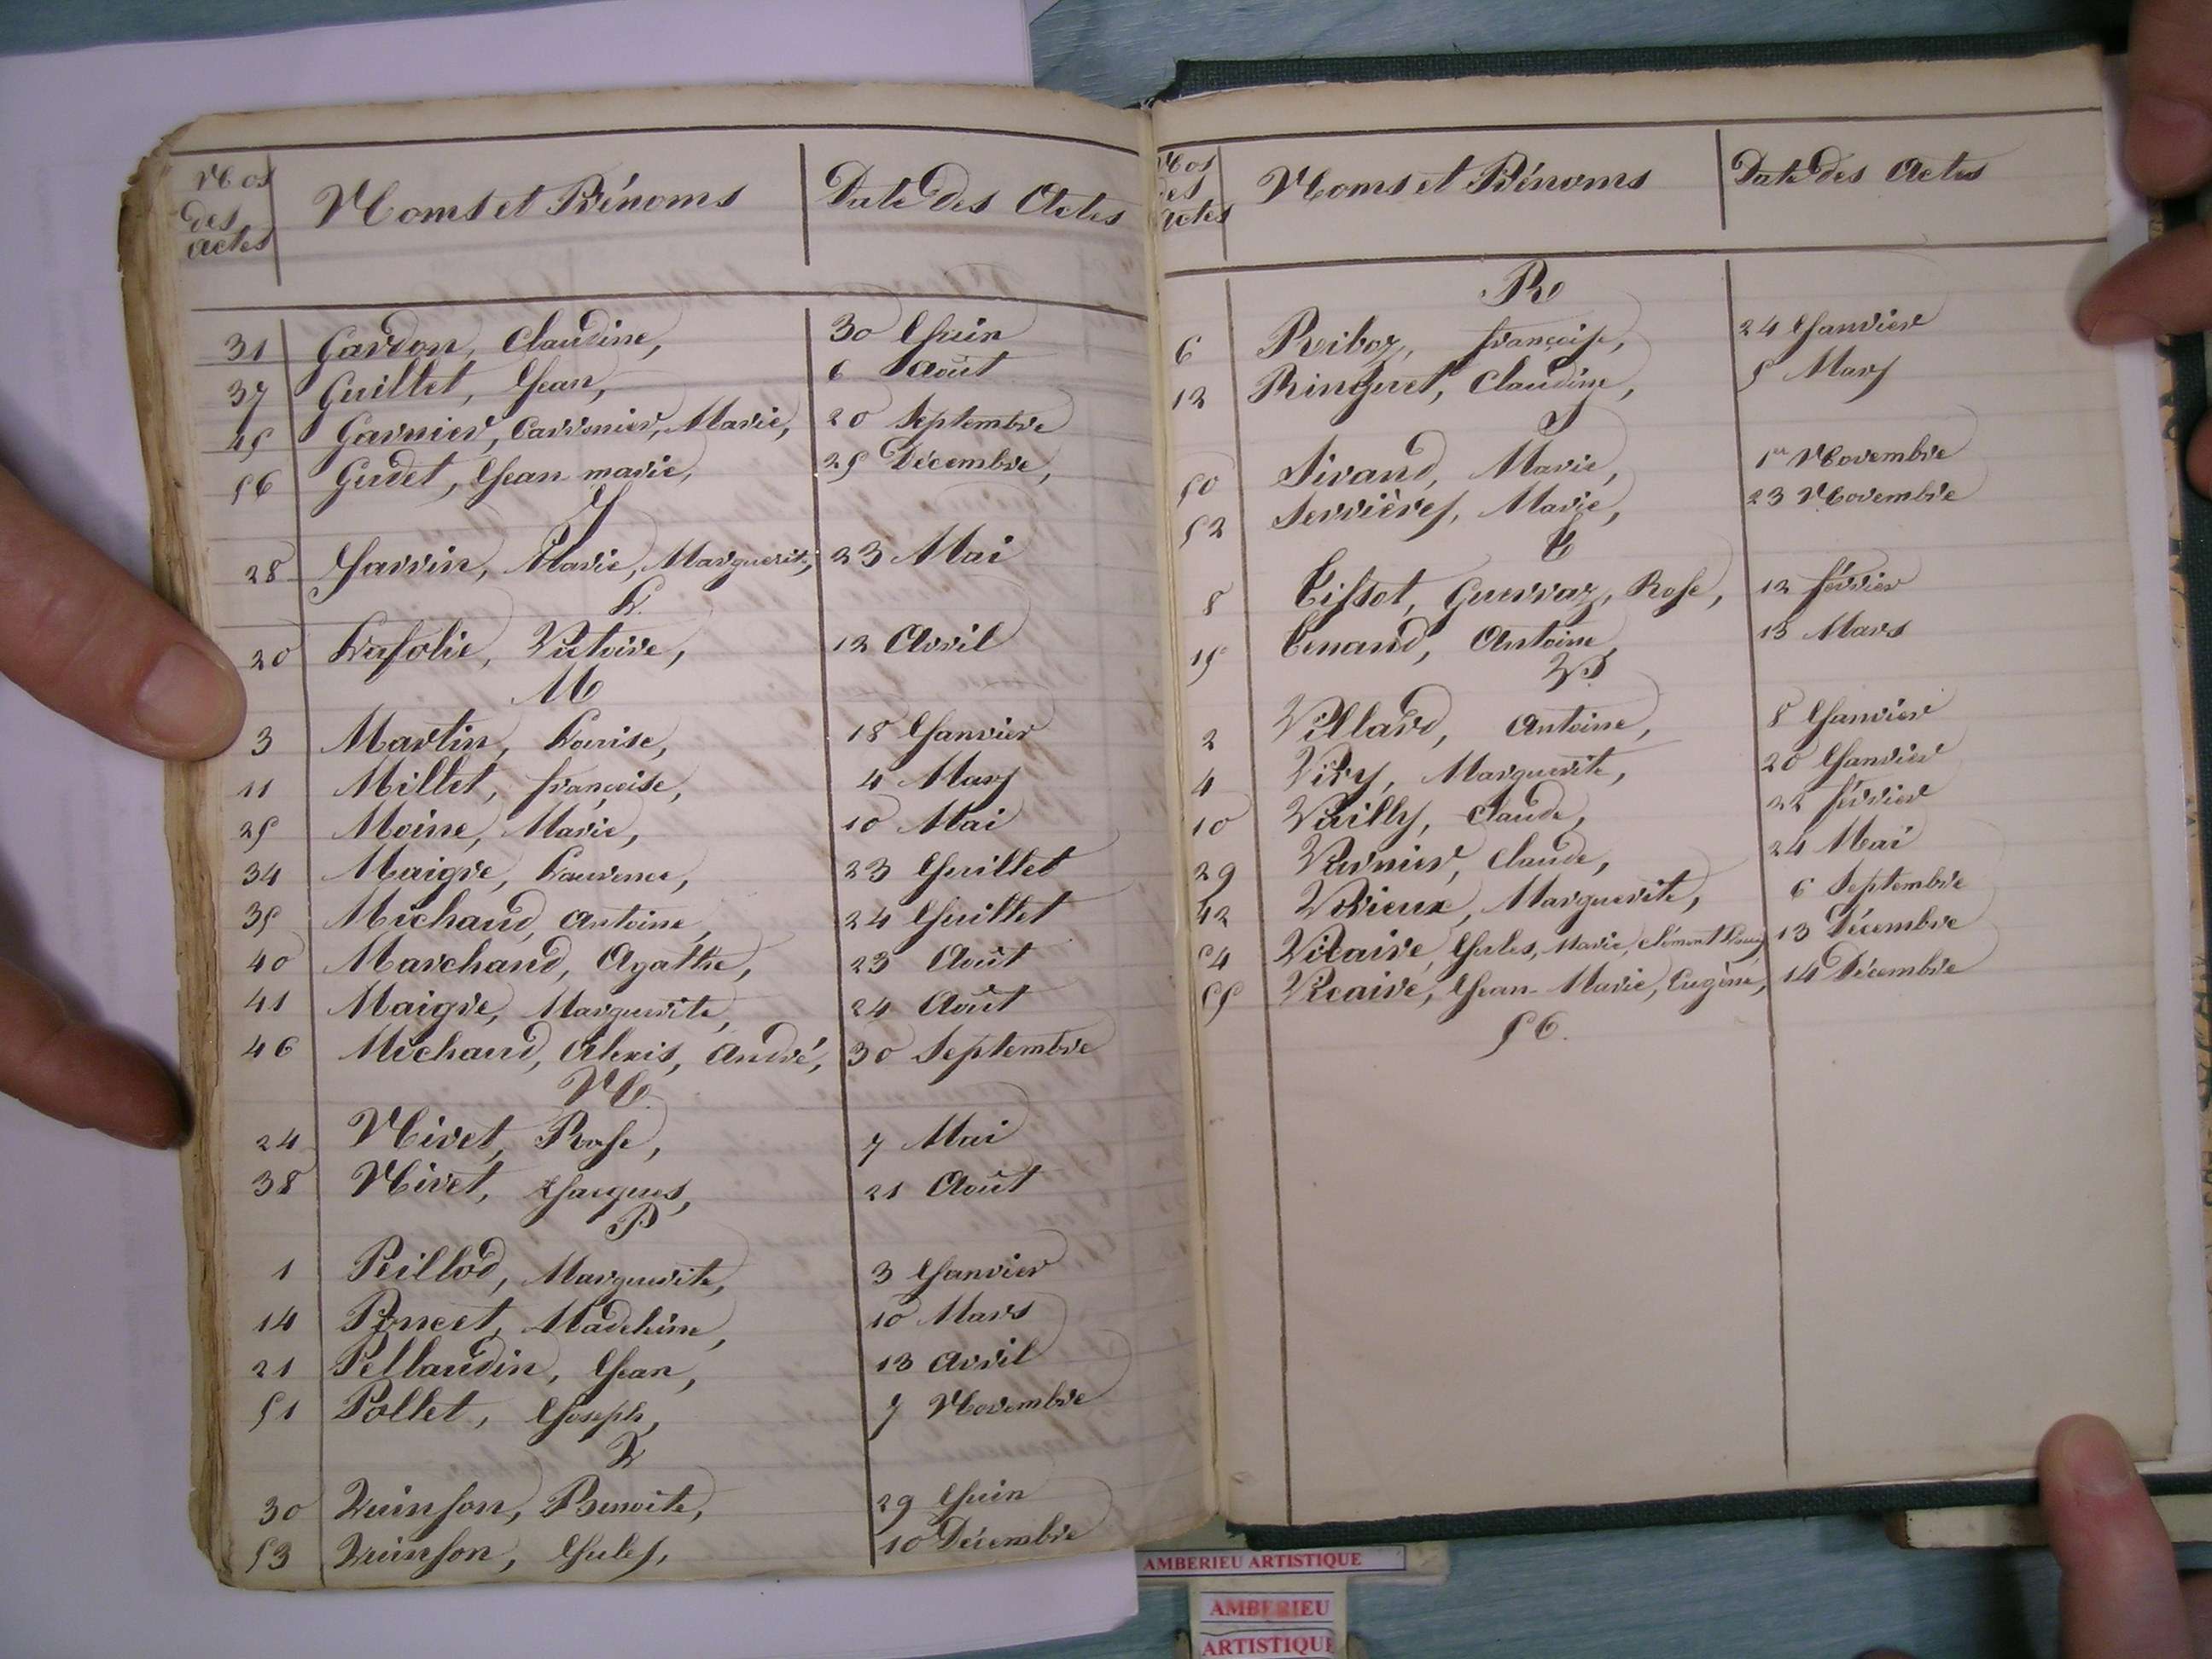 Nos des actes Noms et Prénoms Date des Actes
31 Gardon, Claudine, 30 Juin
37 Guillet, Jean, 6 Août
45 Garnier, Carronier, Marie, 20 Septembre
56 Gudet, Jean marie, 25 Décembre,
J
28 Jarrin, Marie, Marguerite, 23 Mai
L.
20 Lafolie, Victoire, 12 Avril
M
3 Martin, Louise, 18 Janvier
11 Millet, françoise, 4 Mars
25 Moine, Marie, 10 Mai
34 Maigre, Laurence, 23 Juillet
35 Michaud, Antoine, 24 Juillet
40 Marchand, Agathe, 23 Août
41 Maigre, Marguerite, 24 Août
46 Michaud, Alexis, André, 30 Septembre
N.
24 Nivet, Rose, 7 Mai
38 Nivet, Jacques, 21 Août
P
1 Peillod, Marguerite, 3 Janvier
14 Poncet, Madeleine, 10 Mars
21 Pellaudin, Jean, 13 Avril
51 Pollet, Joseph, 7 Novembre
Q
30 Quinson, Benoite, 29 Juin
53 Quinson, Jules, 10 Décembre
Nos des actes Noms et Prénoms Date des Actes
R
6 Riboz, françoise, 24 Janvier
12 Ringuet, Claudine, 5 Mars
S
50 Sirand, Marie, 1er Novembre
52 Serrières, Marie, 23 Novembre
T
8 Tissot, Guerraz, Rose, 12 février
15 Tenand, Antoine, 13 Mars
V
2 Villard, Antoine, 8 Janvier
4 Viry, Marguerite, 20 Janvier
10 Vailly, Claude, 22 février
29 Varnier, Claude, 24 Mai
42 Vivieux, Marguerite, 6 Septembre
54 Vicaire, Jules, Marie, Clément 13 Décembre
55 Vicaire, Jean-Marie, Eugène, 14 Décembre
56.
AMBERIEU ARTISTIQUE
AMBERIEU
ARTISTIQUE